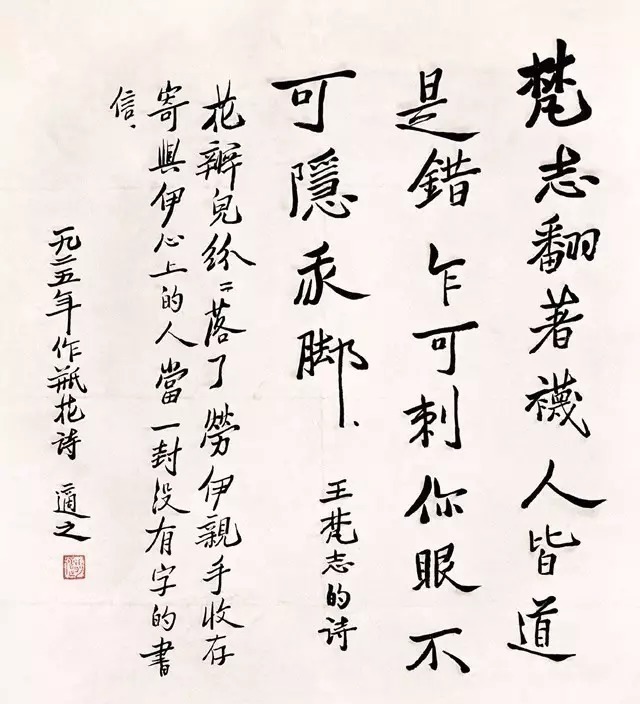 梵志翻著襪人皆道
是錯乍可刺你眼不
可隱汞脚、
王梵志的诗
花瓣兒纷〻落了勞伊親手收存
寄與伊心上的人當一封没有字的書
信、
一九二五年作瓶花诗 適之